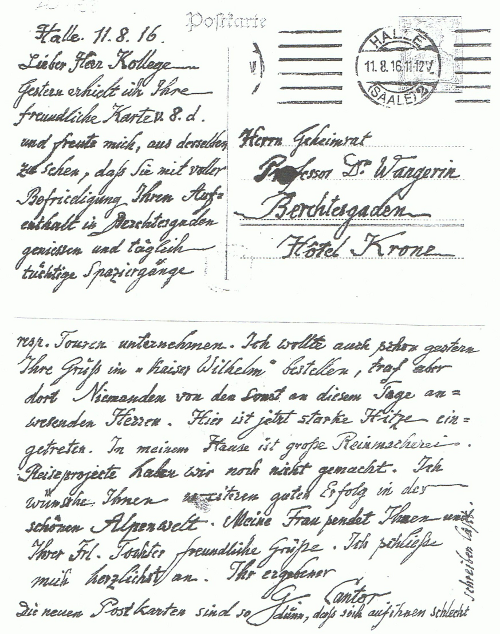 Postkarte
Halle. 11.8.16.
Lieber Herr Kollege
Gestern erhielt ich Ihre
freundliche Karte v. 8. d.
und freute mich, aus derselben
zu sehen, daß Sie mit voller
Befriedigung Ihren Auf=
enthalt in Berchtesgaden
geniessen und täglich
tüchtige Spaziergänge
HALLE
11.8.16.11-12V
(SAALE) 2
Herrn Geheimrat
Professor Dr Wangerin
Berchtesgaden
Hôtel Krone
resp. Touren unternehmen. Ich wollte auch schon gestern
Ihre Grüße im „Kaiser Wilhelm" bestellen, traf aber
dort Niemanden von den sonst an diesem Tage an=
wesenden Herren. Hier ist jetzt starke Hitze ein=
getreten. In meinem Hause ist große Reinmacherei.
Reiseprojecte haben wir noch nicht gemacht. Ich
wünsche Ihnen weiteren guten Erfolg in der
schönen Alpenwelt. Meine Frau sendet Ihnen und
Ihrer Frl. Tochter freundliche Grüße. Ich schließe
mich herzlichst an. Ihr ergebener
G. Cantor.
Die neuen Postkarten sind so dünn, daß sich auf ihnen schlecht
schreiben läßt.